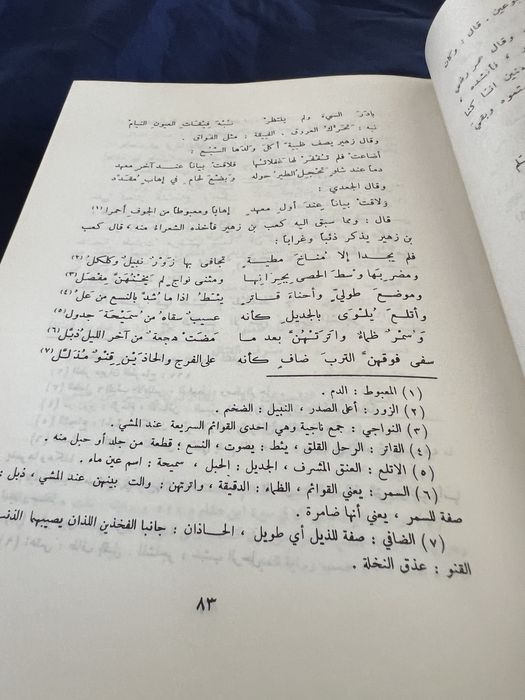 بادَرَ السيءَ ولم ينتظر نُبْهَ فِيقاتِ العيون النيام
نبه : تحرك العروق . الفيقة : مثل الفواق .
وقال زهير يصف ظبية أكل ولدَها السَّبُع :
أضاعت فلم تُغْفَر لها غفلاتُها فلاقت بياناً عند آخر معهد
دماً عند شلو تحجل الطير حوله وبضع لحام في إهاب مقدد
وقال الجعدي :
ولاقت بياناً عند أول معهد إهاباً ومعبوطاً من الجوف أحمرا (١)
قال : ومما سبق اليه كعب بن زهير فأخذه الشعراء منه ، قال كعب
بن زهير يذكر ذئباً وغراباً :
فلم يجدا إلا مُناخَ مطية تجافى بها زَوْرٌ نبيل وكلكل (٢)
ومضربها وسط الحصى بجرانها ومثنى نواج لم يخنهن مفصل (٣)
وموضع طولي وأحناء قاتر يئط اذا ما شُدَّ بالنسع من عَل (٤)
وأتلع يُلوى بالجديل كأنه عسيب سقاه من سميحة جدول (٥)
وسُمر ظماء واترتهن بعد ما مضت هجعة من آخر الليل ذُبَّل (٦)
سفى فوقهن الترب ضاف كأنه على الفرج والحاذين قنو مذلل (٧)
(١) المعبوط : الدم .
(٢) الزور : أعلى الصدر ، النبيل : الضخم .
(٣) النواجي : جمع ناجية وهي احدى القوائم السريعة عند المشي .
(٤) القاتر : الرحل القلق ، يئط : يصوت ، النسع : قطعة من جلد أو حبل منه .
(٥) الاتلع : العنق المشرف ، الجديل : الحبل ، سميحة : اسم عين ماء .
(٦) السمر : يعني القوائم ، الظماء : الدقيقة ، واترتهن : والت بينهن عند المشي ، ذبل :
صفة للسمر ، يعني أنها ضامرة .
(٧) الضافي : صفة للذيل أي طويل ، الحاذان : جانبا الفخذين اللذان يصيبهما الذنب
القنو : عذق النخلة .
٨٣
قال : وكان
وقال عمر رضي
، فأنشده ،